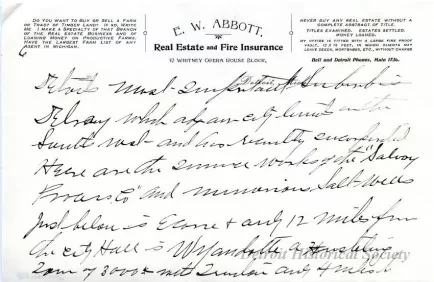 DO YOU WANT TO BUY OR SELL A FARM
OR TRACT OF TIMBER LAND? IF SO, WRITE
ME. I MAKE A SPECIALTY OF THAT BRANCH
OF THE REAL ESTATE BUSINESS AND OF
LOANING MONEY ON PRODUCTIVE FARMS.
HAVE THE LARGEST FARM LIST OF ANY
AGENT IN MICHIGAN.
E. W. ABBOTT,
Real Estate and Fire Insurance
17 WHITNEY OPERA HOUSE BLOCK,
NEVER BUY ANY REAL ESTATE WITHOUT A
COMPLETE ABSTRACT OF TITLE.
TITLES EXAMINED. ESTATES SETTLED.
MONEY LOANED.
MY OFFICE IS FITTED WITH A LARGE FIRE PROOF
VAULT, IN WHICH CLIENTS MAY
LEAVE DEEDS, MORTGAGES, ETC., WITHOUT CHARGE
Bell and Detroit Phones, Main 1736.
6
Detroit most important Suburb is
Delray which city limit on the
South west and has recently incorporated
Here are the works of the "Solvay
Process Co" and numerous Salt Wells
Just below is Ecorse & only 12 miles from
the City Hall is Wyandotte a Hustling
Town of 3000 & with Trenton only 4 miles
Detroit Historical Society